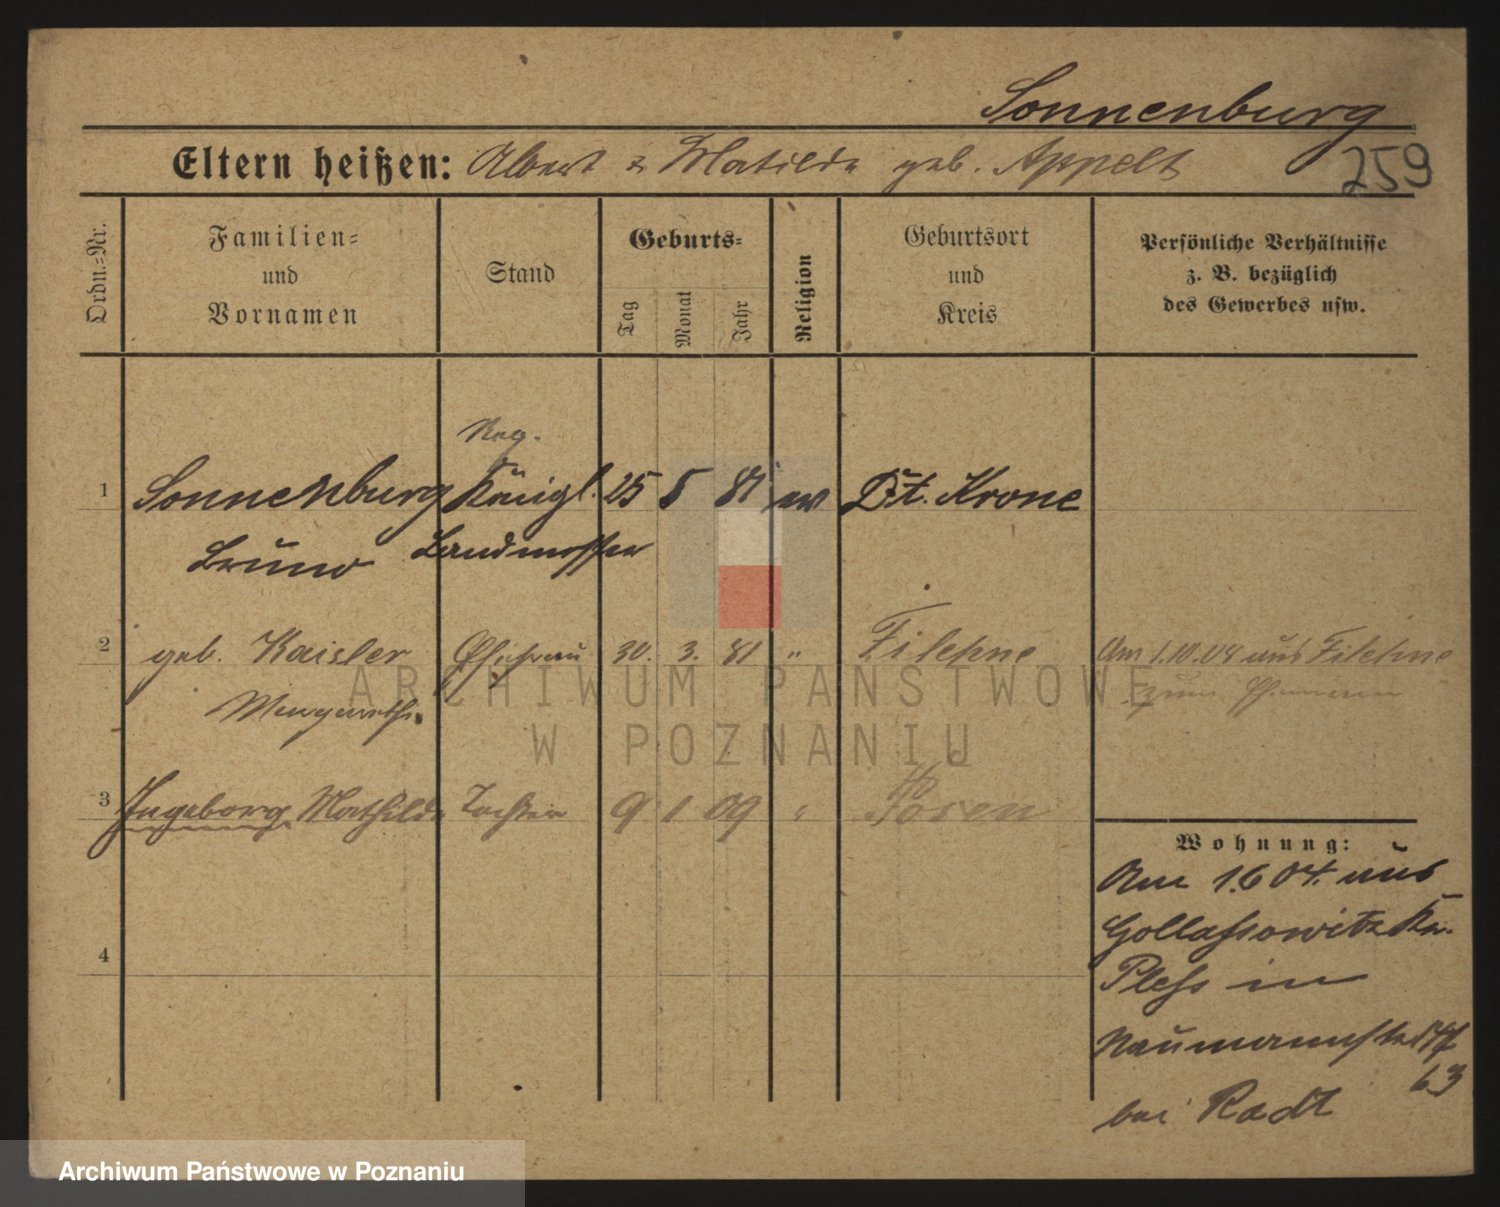 Sonnenburg
Eltern heißen: Albert & Matilde geb. Appelt
259
Ordn.-Nr.
Familien-
und
Vornamen
Stand
Geburts-
Tag
Monat
Jahr
Religion
Geburtsort
und
Kreis
Persönliche Verhältnisse
z. B. bezüglich
des Gewerbes usw.
Reg.
1 Sonnenburg Königl. 25 5 81 ev Dt. Krone
Bruno Landmesser
2 geb. Kaisler Ehefrau 30. 3. 81 " Filehne Am 1.10.04 aus Filehne
Margarethe zum Ehemann
3 Ingeborg Mathilde Tochter 9 1 09 " Posen
Wohnung:
Am 1.6 04. aus
Gollassowitz Kr.
4
Pless in
Naumannstr.
63
bei Radt
ARCHIWUM PAŃSTWOWE
W POZNANIU
Archiwum Państwowe w Poznaniu